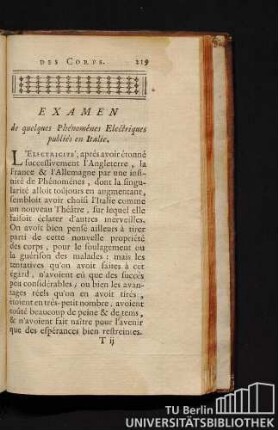 DES CORPS. 219
EXAMEN
de quelques Phénomènes Electriques
publiés en Italie.
L'ELECTRICITÉ, après avoir étonné
successivement l'Angleterre, la
France & l'Allemagne par une infi-
nité de Phénomènes, dont la singu-
larité alloit toujours en augmentant,
sembloit avoir choisi l'Italie comme
un nouveau Théâtre, sur lequel elle
faisoit éclater d'autres merveilles.
On avoit bien pensé ailleurs à tirer
parti de cette nouvelle propriété
des corps, pour le soulagement ou
la guérison des malades : mais les
tentatives qu'on avoit faites à cet
égard, n'avoient eû que des succès
peu considérables, ou bien les avan-
tages réels qu'on en avoit tirés,
étoient en très-petit nombre, avoient
coûté beaucoup de peine & de tems,
& n'avoient fait naître pour l'avenir
que des espérances bien restreintes.
T ij
TU Berlin
UNIVERSITÄTSBIBLIOTHEK